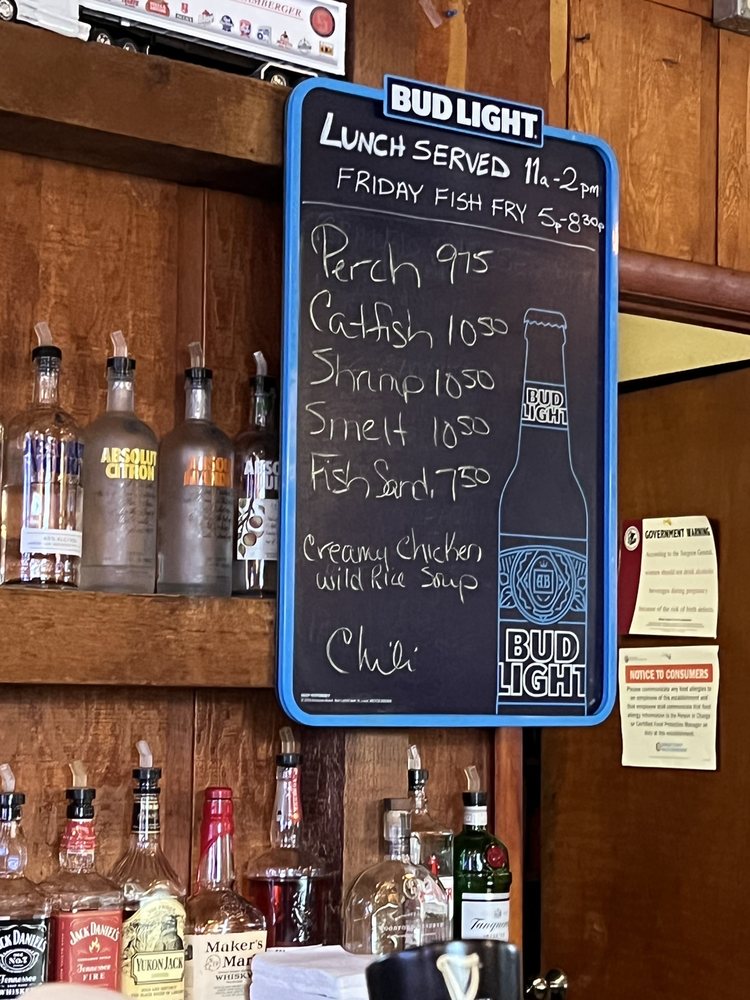 BUD LIGHT
LUNCH SERVED 11a-2pm
FRIDAY FISH FRY 5p-8³⁰p
Perch 9⁷⁵
Catfish 10⁵⁰
Shrimp 10⁵⁰
Smelt 10⁵⁰
Fish Sand. 7⁵⁰
Creamy Chicken
Wild Rice Soup
Chili
BUD
LIGHT
BUD
LIGHT
ABSOLUT
CITRON
GOVERNMENT WARNING
According to the Surgeon General,
women should not drink alcoholic
beverages during pregnancy
because of the risk of birth defects.
NOTICE TO CONSUMERS
Please communicate any food allergies to
an employee of this establishment and
that employee shall communicate that food
allergy information to the Person in Charge
or Certified Food Protection Manager on
duty at this establishment.
JACK DANIEL'S
Tennessee
JACK DANIEL'S
Tennessee
FIRE
YUKON JACK
Maker's
Mark
WHISKY
Tanqueray